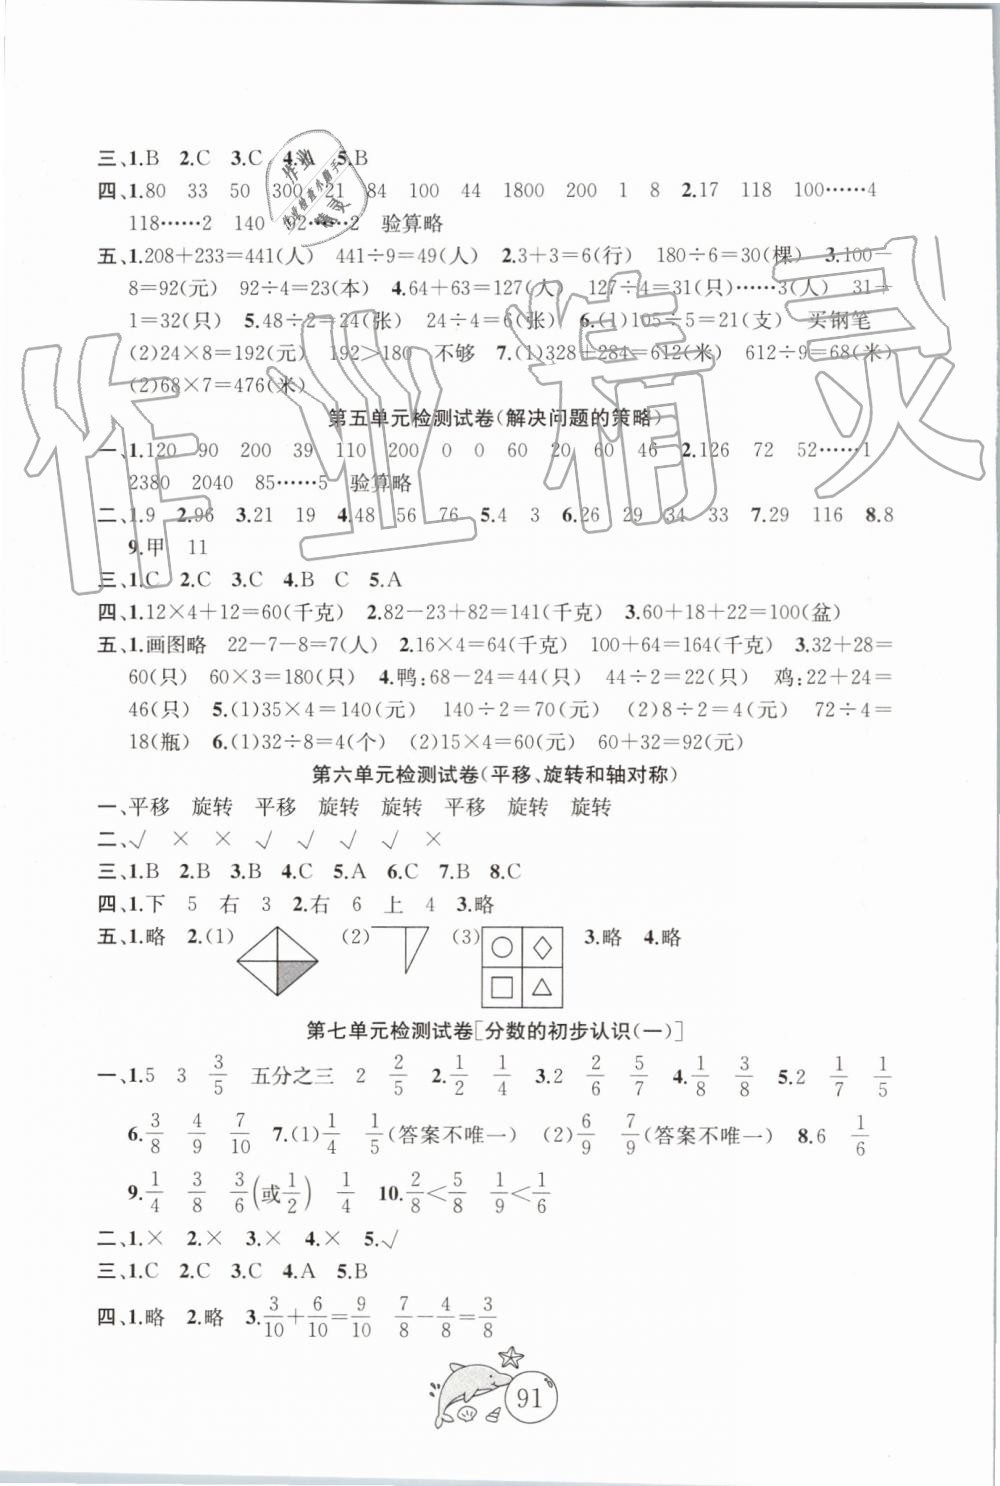 三、1.B 2.C 3.C 4. 5.B
四、1.80 33 50 300 21 84 100 44 1800 200 1 8 2.17 118 100……4
118……2 140 92……2 验算略
五、1.208+233=441(人) 441÷9=49(人) 2.3+3=6(行) 180÷6=30(棵) 3.100-
8=92(元) 92÷4=23(本) 4.64+63=127(人) 127÷4=31(只)……3(人) 31+
1=32(只) 5.48÷2=24(张) 24÷4=6(张) 6.(1)105÷5=21(支) 买钢笔
(2)24×8=192(元) 192>180 不够 7.(1)328+284=612(米) 612÷9=68(米)
(2)68×7=476(米)
第五单元检测试卷(解决问题的策略)
一、1.120 90 200 39 110 200 0 0 60 20 60 46 2.126 72 52……1
2380 2040 85……5 验算略
二、1.9 2.96 3.21 19 4.48 56 76 5.4 3 6.26 29 34 33 7.29 116 8.8
9.甲 11
三、1.C 2.C 3.C 4.B C 5.A
四、1.12×4+12=60(千克) 2.82-23+82=141(千克) 3.60+18+22=100(盆)
五、1.画图略 22-7-8=7(人) 2.16×4=64(千克) 100+64=164(千克) 3.32+28=
60(只) 60×3=180(只) 4.鸭:68-24=44(只) 44÷2=22(只) 鸡:22+24=
46(只) 5.(1)35×4=140(元) 140÷2=70(元) (2)8÷2=4(元) 72÷4=
18(瓶) 6.(1)32÷8=4(个) (2)15×4=60(元) 60+32=92(元)
第六单元检测试卷(平移、旋转和轴对称)
一、平移 旋转 平移 旋转 旋转 平移 旋转 旋转
二、√ × × √ √ √ √ ×
三、1.B 2.B 3.B 4.C 5.A 6.C 7.B 8.C
四、1.下 5 右 3 2.右 6 上 4 3.略
五、1.略 2.(1) (2) (3) 3.略 4.略
第七单元检测试卷[分数的初步认识(一)]
一、1.5 3 3/5 五分之三 2 2/5 2.1/2 1/4 3.2 2/6 5/7 4.1/8 3/8 5.2 1/7 1/5
6.3/8 4/9 7/10 7.(1)1/4 1/5(答案不唯一) (2)6/9 7/9(答案不唯一) 8.6 1/6
9.1/4 3/8 3/6(或1/2) 1/4 10.2/8<5/8 1/9<1/6
二、1.× 2.× 3.× 4.× 5.√
三、1.C 2.C 3.C 4.A 5.B
四、1.略 2.略 3.3/10+6/10=9/10 7/8-4/8=3/8
91
作业精灵